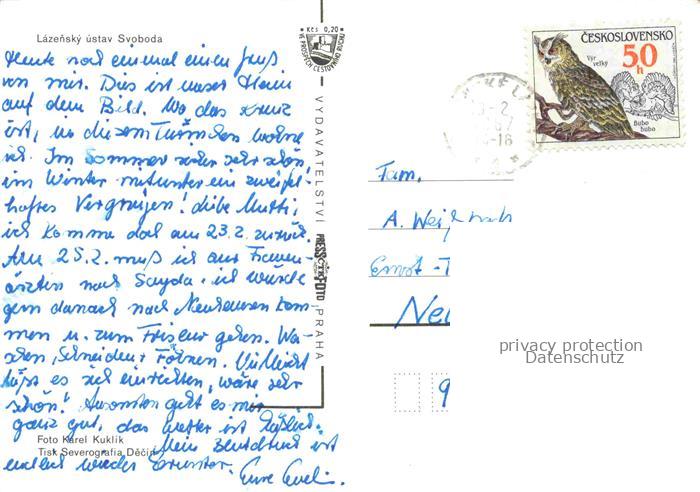 Lázeňský ústav Svoboda
Heute noch einmal einen Gruß
von mir. Dies ist unser Heim
auf dem Bild. Wo das Kreuz
ist, in diesem Türmchen wohne
ich. Im Sommer sehr schön,
im Winter mitunter ein zweifel-
haftes Vergnügen! Liebe Mutti,
ich komme doch am 23.2. zurück.
Am 25.2. muß ich zur Frauen-
ärztin nach Sayda. ich würde
gern danach nach Neuhausen kom-
men u. zum Friseur gehen. Wa-
schen, Schneiden, Föhnen. Vielleicht
läßt es sich einrichten, wäre sehr
schön! Ansonsten geht es mir
ganz gut, das Wetter ist häßlich.
Mein Blutdruck ist
endlich wieder
Eure
Foto Karel Kuklík
Tisk Severografia Děčín
Kčs 0,20
VE PROSPĚCH ČESTOVNÍHO RUCHU
VYDAVATELSTVÍ PRESSFOTO PRAHA
ČTK
ČESKOSLOVENSKO
50 h
Výr velký
Bubo bubo
Fam.
A.
Ernst-T
Neu
9
privacy protection
Datenschutz